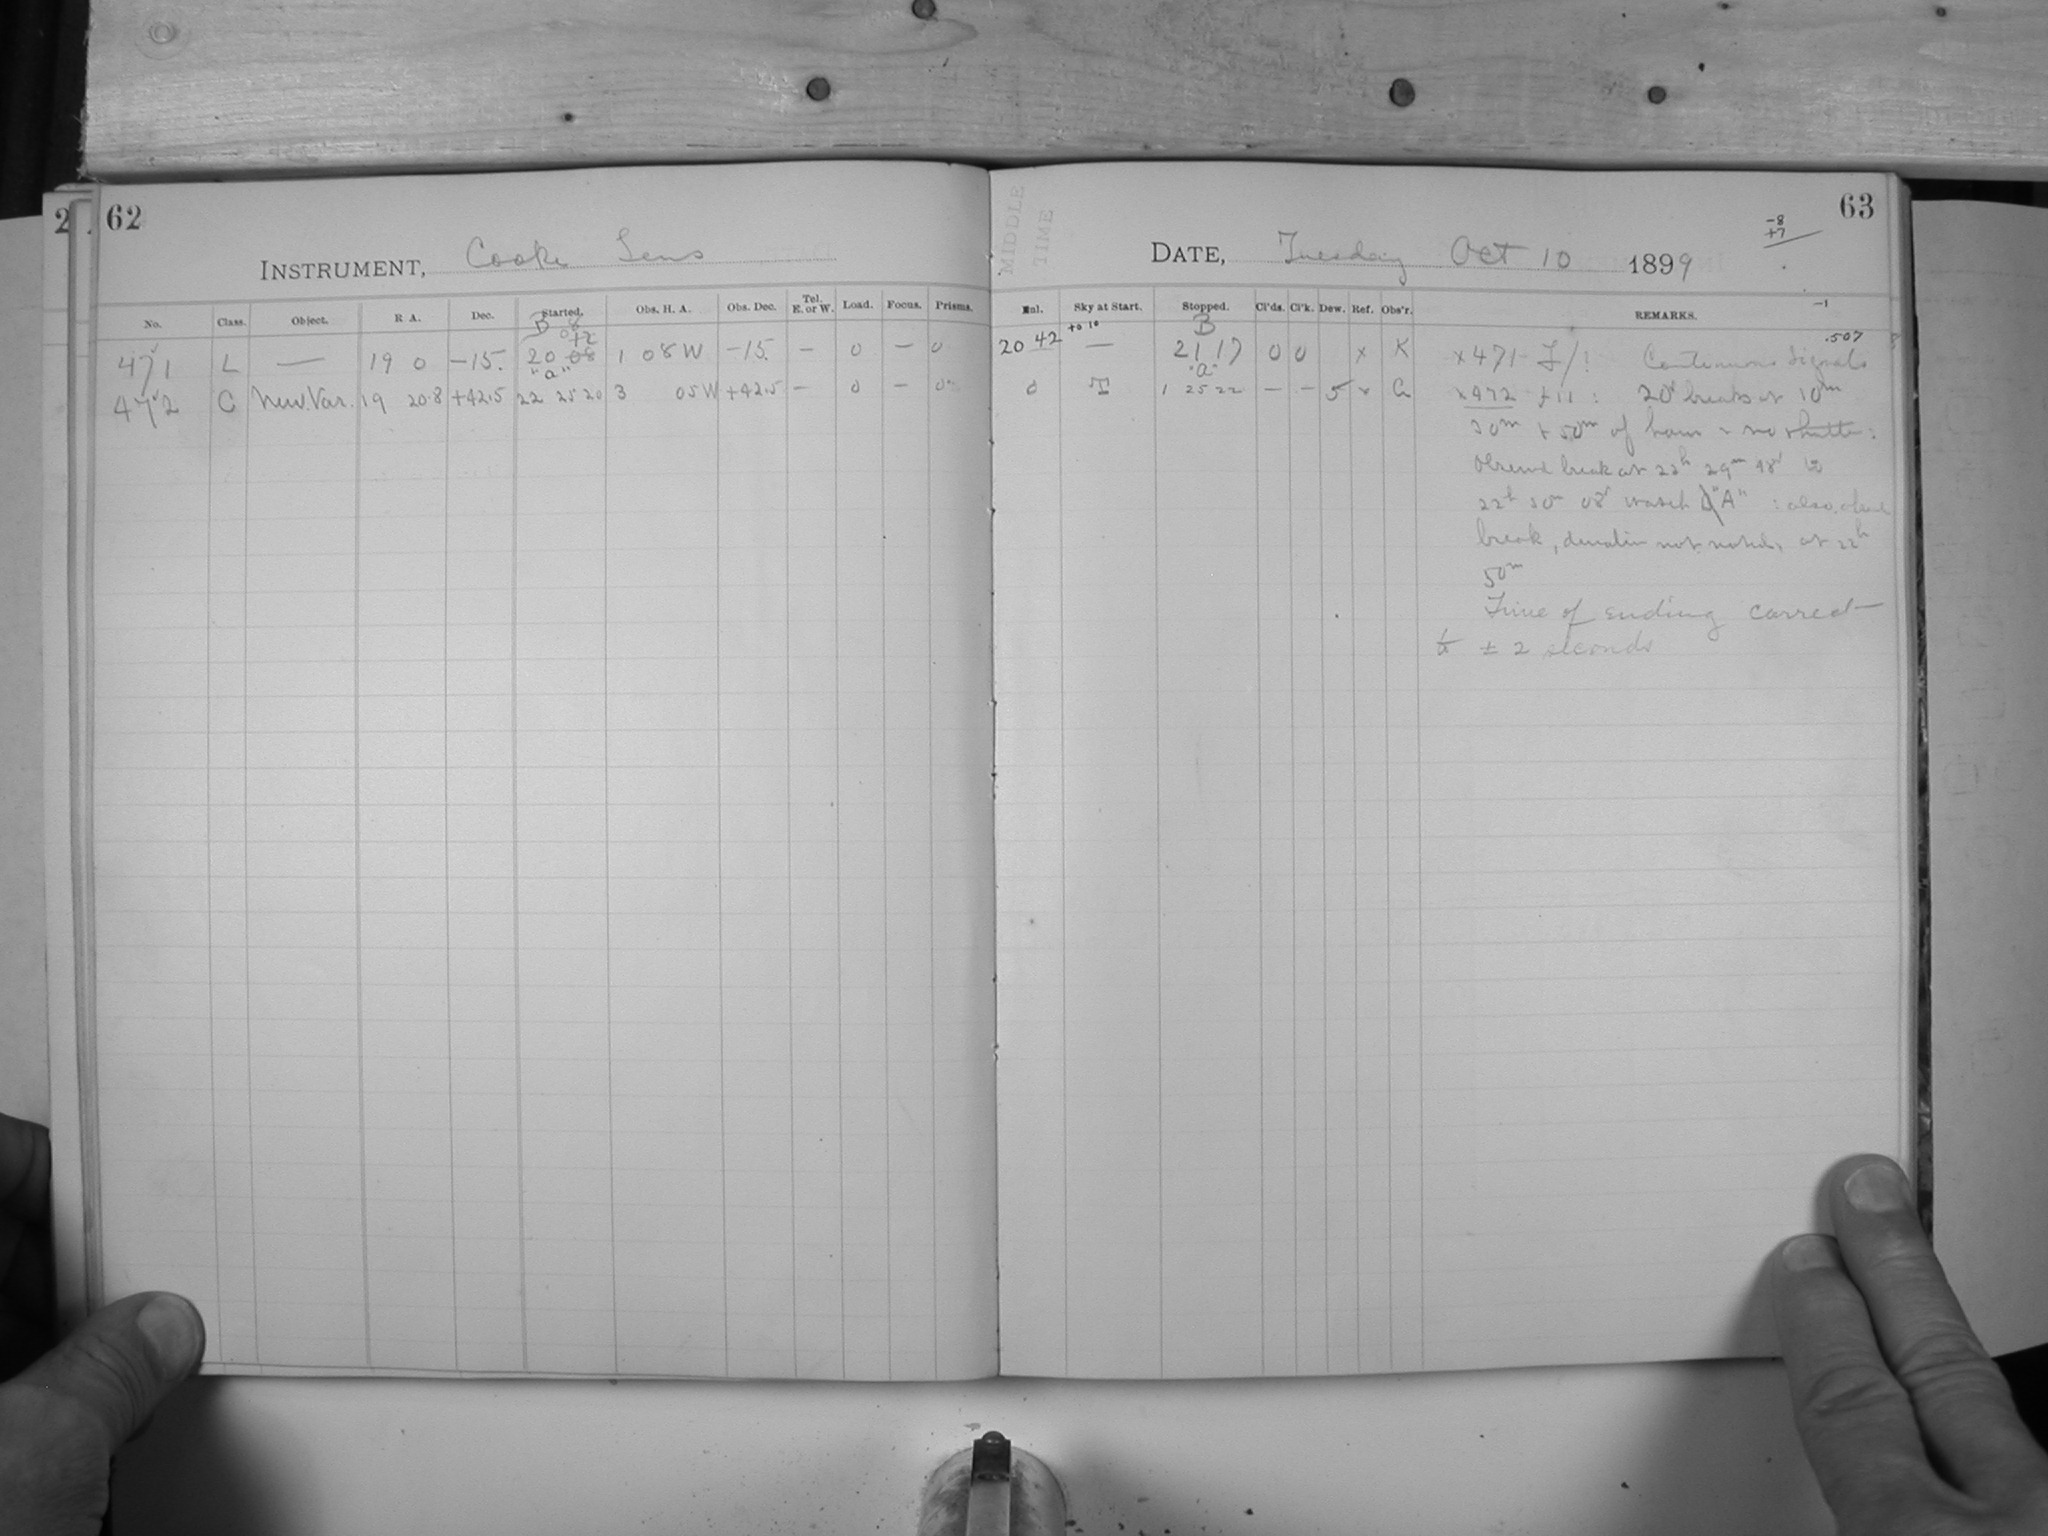 2
62
INSTRUMENT, Cooke Lens
No. Class. Object. R A. Dec. Started. Obs. H. A. Obs. Dec. Tel. E. or W. Load. Focus. Prisms.
B 8
471 L — 19 0 -15. 20 08 1 08 W -15. - 0 - 0
"a"
472 C New Var. 19 20.8 +42.5 22 25 20 3 05 W +42.5 - 0 - 0
MIDDLE
TIME
63
-8
+7
DATE, Tuesday Oct 10 1899
-1
Sky at Start. Stopped. Cl'ds. Cl'k. Dew. Ref. Obs'r. REMARKS.
.507
+0 10 B
20 42 — 21 17 0 0 x K x 471 Continuous Signals
"a"
0 1 25 22 - - 5 x G x 472 20s breaks at 10m
30m + 50m of hour
break at 22h 29m 48s to
22h 30m 08s watch "A" : also
break, duration not noted, at 22h
50m
Time of ending correct
to ± 2 seconds